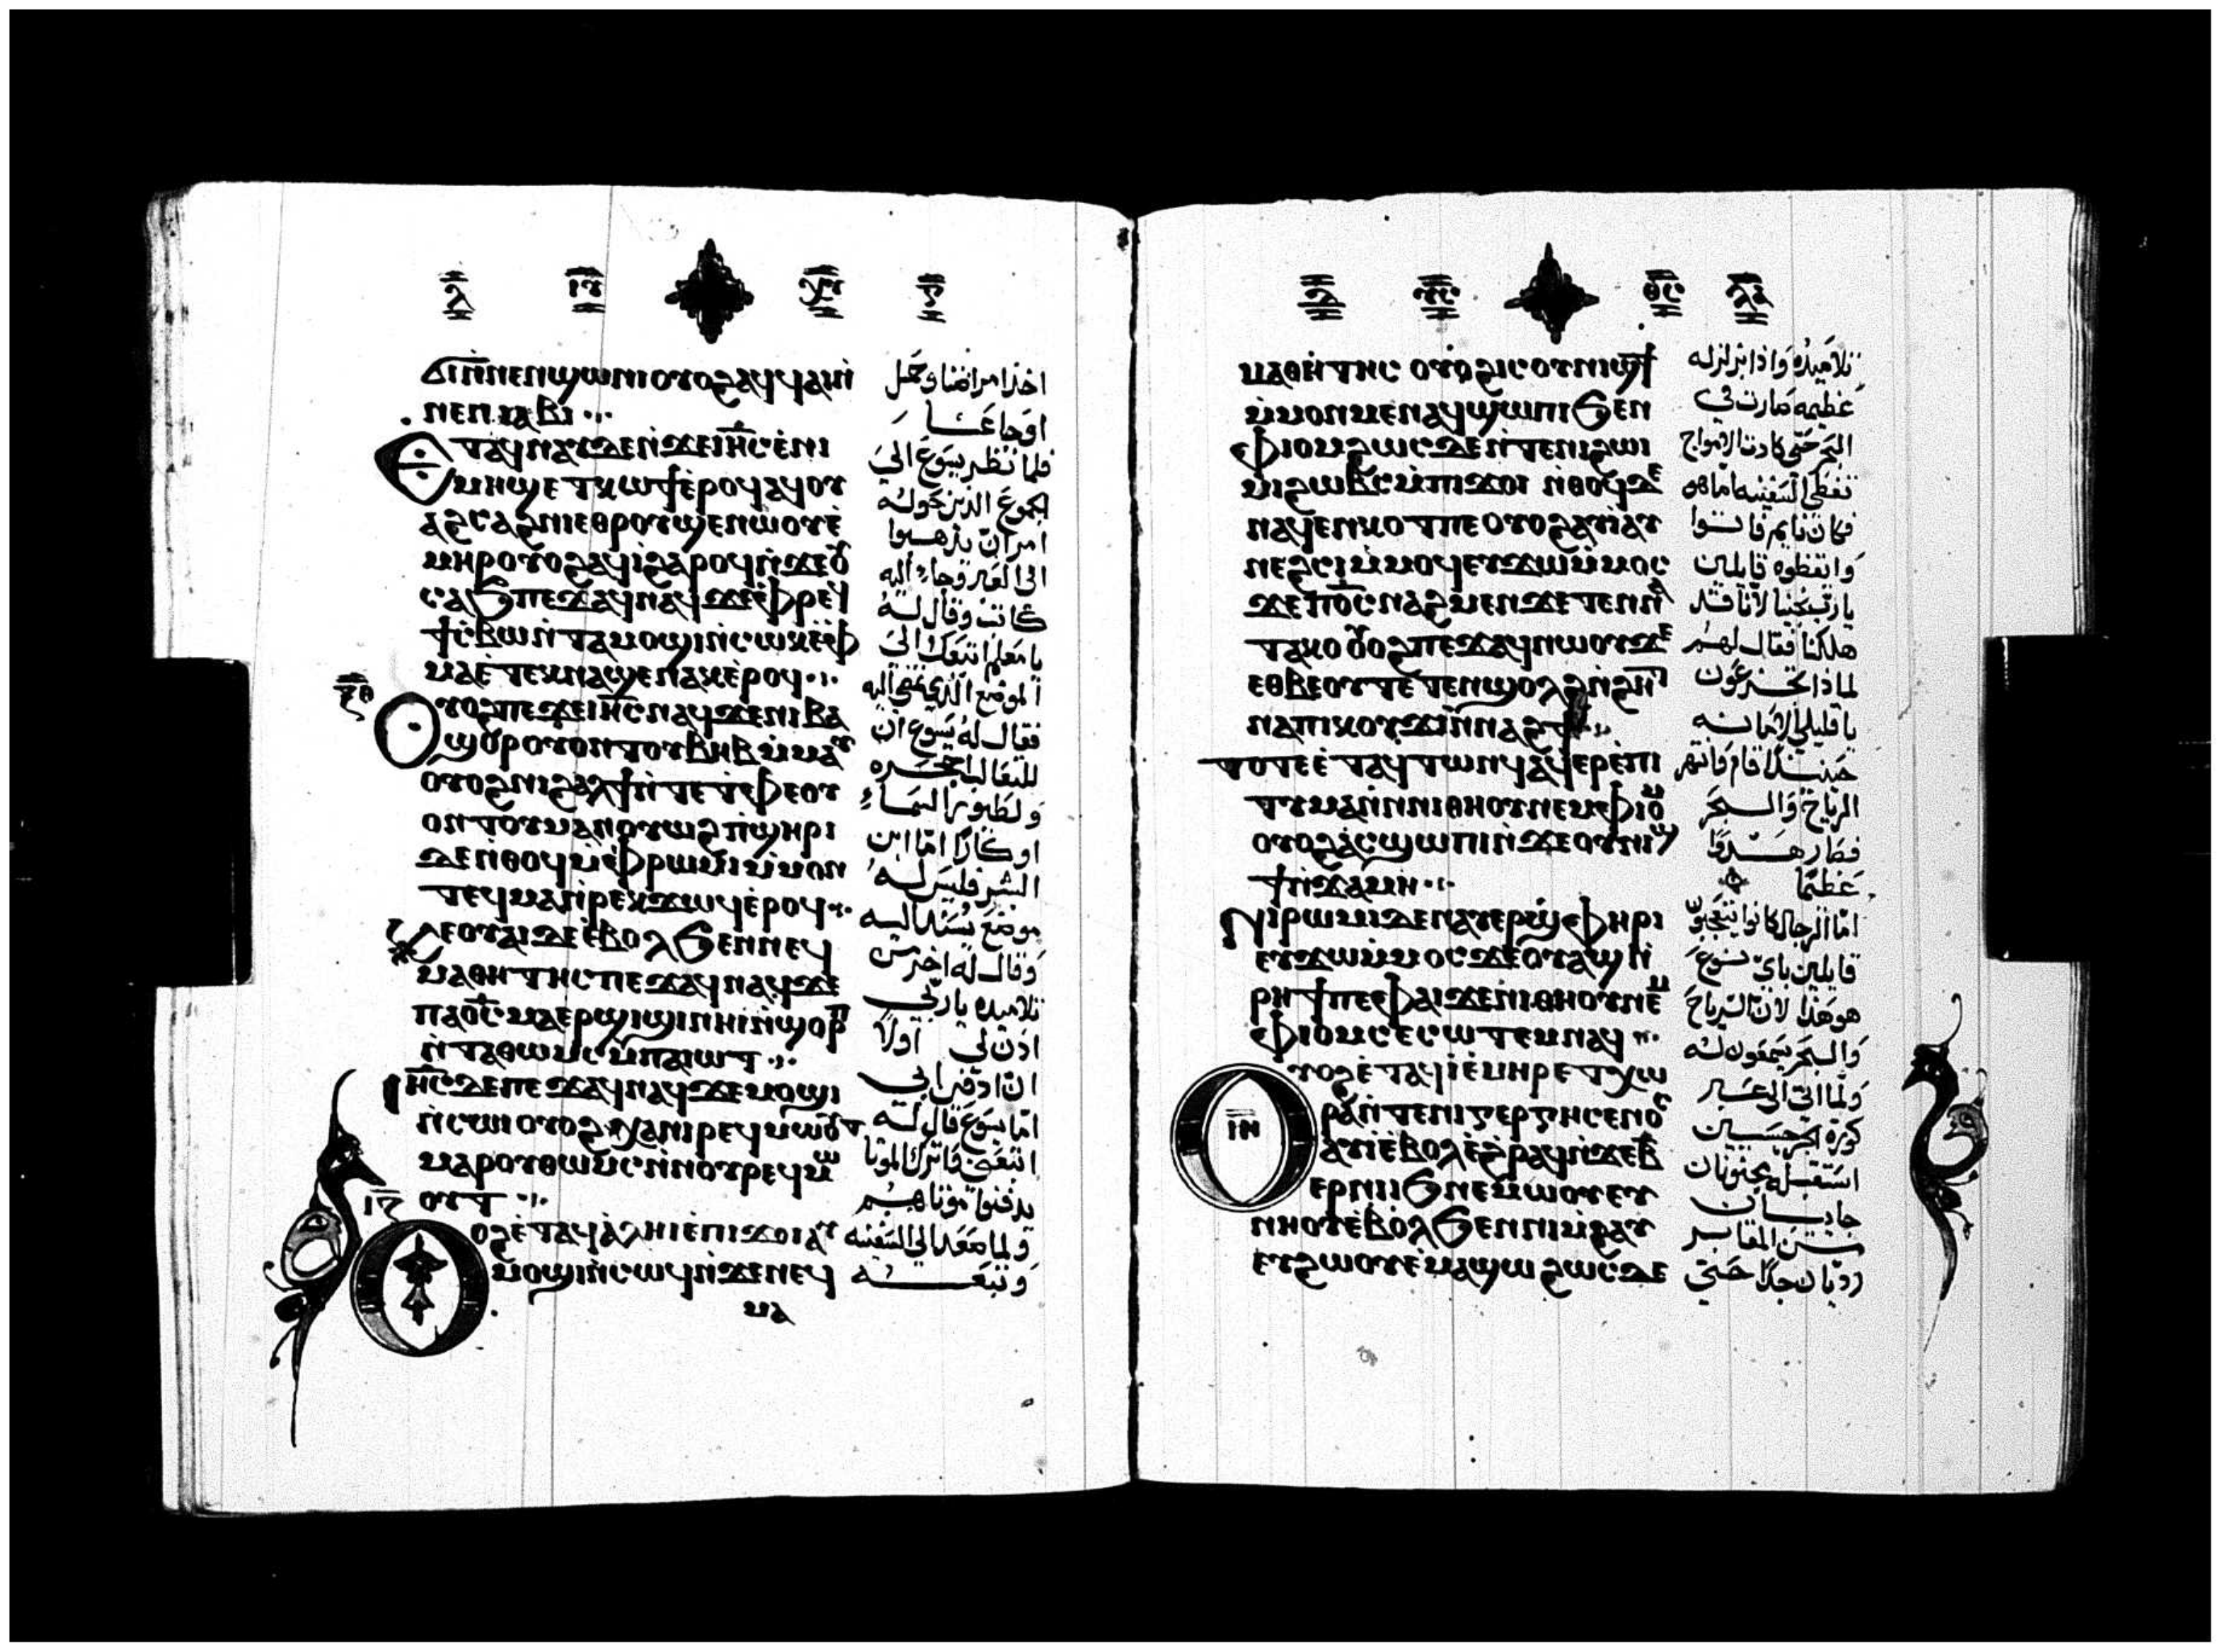 ϭⲓⲛ̀ⲛⲉⲛϣⲱⲛⲓⲟⲩⲟϩⲁϥϥⲁⲓⲛ̀
ⲛⲉⲛⲓⲁⲃⲓ
ⲉⲧⲁϥⲛⲁⲩⲇⲉⲛ̀ϫⲉⲓⲏ̅ⲥ̅ⲉ̀ⲛⲓ
ⲙⲏϣⲉⲧⲕⲱϯⲉ̀ⲣⲟϥⲁϥⲟⲩ
ⲁϩⲥⲁϩⲛⲓⲉⲑⲣⲟⲩϣⲉⲛⲱⲟⲩⲉ̀
ⲙⲏⲣⲟⲩⲟϩⲁϥⲓ̀ϩⲁⲣⲟϥⲛ̀ϫⲉⲟⲩ
ⲥⲁϧⲡⲉϫⲁϥⲛⲁϥϫⲉⲫⲣⲉϥ
ϯⲥ̀ⲃⲱⲛ̀ⲧⲁⲙⲟϣⲓⲛ̀ⲥⲱⲕⲉ̀ⲫ
ⲙⲁⲉ̀ⲧⲉⲕⲛⲁϣⲉⲛⲁⲕⲉ̀ⲣⲟϥ
ⲟⲩⲟϩⲡⲉϫⲉⲓⲏ̅ⲥ̅ⲛⲁϥϫⲉⲛⲓⲃⲁ
ϣⲟⲣⲟⲩⲟⲛⲧⲟⲩⲃⲏⲃⲙ̀ⲙⲁⲩ
ⲟⲩⲟϩⲛⲓϩⲁⲗϯⲛ̀ⲧⲉⲧ̀ⲫⲉⲟⲩ
ⲟⲛⲧⲟⲩⲙⲁⲛⲟⲩⲱϩⲡ̀ϣⲏⲣⲓ
ⲇⲉⲛ̀ⲑⲟϥⲙ̀ⲫⲣⲱⲙⲓⲙ̀ⲙⲟⲛ
ⲧⲉϥⲙⲁⲛ̀ⲣⲉⲕϫⲱϥⲉ̀ⲣⲟϥ
ⲕⲉⲟⲩⲁⲓⲇⲉⲉ̀ⲃⲟⲗϧⲉⲛⲛⲉϥ
ⲙⲁⲑⲏⲧⲏⲥⲡⲉϫⲁϥⲛⲁϥϫⲉ
ⲡⲁϭⲥ̅ⲙⲁⲉⲣϣⲓϣⲓⲛⲏⲓⲛ̀ϣⲟⲣⲡ
ⲛ̀ⲧⲁⲑⲱⲙⲥⲙ̀ⲡⲁⲓⲱⲧ
ⲓⲏ̅ⲥ̅ⲇⲉⲡⲉϫⲁϥⲛⲁϥϫⲉⲙⲟϣⲓ
ⲛ̀ⲥⲱⲓⲟⲩⲟϩⲭⲁⲛⲓⲣⲉϥⲙⲱⲟⲩⲧ
ⲙⲁⲣⲟⲩⲑⲱⲙⲥⲛ̀ⲛⲟⲩⲣⲉϥⲙⲱ
ⲓ̅ⲍ̅ ⲟⲩⲧ
ⲟⲗⲉ̀ⲧⲁϥⲁ̀ⲗⲏⲓⲉ̀ⲡⲓϫⲟⲓⲁⲩ
ⲙⲟϣⲓⲛ̀ⲥⲱϥⲛ̀ϫⲉⲛⲉϥ
ⲙⲁ
اوجاعنا
فلما نظر يسوع الى
الجموع الذين حوله
امر ان يذهبوا
الى العبر وجاء اليه
كاتب وقال له
يا معلم اتبعك الى
الموضع الذي تمضي اليه
فقال له يسوع ان
ولطيور السماء
اوكارًا امّا ابن
البشر فليس له
موضع يسند اليه
وقال له اخر من
تلاميذه يا ربي
اذن لي اولاً
ان ادفن ابي
امّا يسوع قال له
اتبعني واترك الموتا
يدفنوا موتاهم
ولما صعد الى السفينه
وتبعه
ⲙⲁⲑⲏⲧⲏⲥ ⲟⲩⲟϩⲓⲥⲟⲩⲛⲓϣϯ
ⲙ̀ⲙⲟⲛⲙⲉⲛⲁϥϣⲱⲡⲓϧⲉⲛ
ⲫⲓⲟⲙϩⲱⲥⲇⲉⲛ̀ⲧⲉⲛⲓϩⲱⲓ
ⲙⲓϩⲱⲃⲥⲙ̀ⲡⲓϫⲟⲓ ⲛ̀ⲑⲟϥⲇⲉ
ⲛⲁϥⲉⲛⲕⲟⲧⲡⲉⲟⲩⲟϩⲁⲩⲓ̀ⲁⲩ
ⲛⲉϩⲥⲓⲙ̀ⲙⲟϥⲉⲩϫⲱⲙ̀ⲙⲟⲥ
ϫⲉⲡϭⲥ̅ⲛⲁϩⲙⲉⲛϫⲉⲧⲉⲛⲛⲁ
ⲧⲁⲕⲟⲟⲩⲟϩⲡⲉϫⲁϥⲛⲱⲟⲩϫⲉ
ⲉⲑⲃⲉⲟⲩⲧⲉⲧⲉⲛϣⲟⲗϩⲛ̀ϩⲏⲧ
ⲛⲁⲡⲓⲕⲟⲩϫⲓⲛ̀ⲛⲁϩϯ
ⲧⲟⲧⲉⲉ̀ⲧⲁϥⲧⲱⲛϥⲁϥⲉⲣⲉ̀ⲡⲓ
ⲧⲓⲙⲁⲛ̀ⲛⲓⲑⲏⲟⲩⲛⲉⲙⲫⲓⲟⲙ
ⲟⲩⲟϩⲁⲥϣⲱⲡⲓⲛ̀ϫⲉⲟⲩⲛⲓϣ
ϯⲛ̀ϫⲁⲙⲏ
ⲛⲓⲣⲱⲙⲓⲇⲉⲛⲁⲩⲉⲣϣⲫⲏⲣⲓ
ⲉⲩϫⲱⲙ̀ⲙⲟⲥϫⲉⲟⲩⲁϣⲛ̀
ⲣⲏϯⲡⲉⲫⲁⲓϫⲉⲛⲓⲑⲏⲟⲩⲛⲉⲙ
ⲫⲓⲟⲙⲥⲉⲥⲱⲧⲉⲙⲛⲁϥ
ⲟⲩⲟϩⲉ̀ⲧⲁϥⲓ̀ⲉ̀ⲙⲏⲣⲉ̀ⲧⲭⲱ
ⲓ̅ⲏ̅
ⲣⲁⲛ̀ⲧⲉⲛⲓⲅⲉⲣⲅⲏⲥⲉⲛⲟⲥ
ⲁⲩⲓ̀ⲉ̀ⲃⲟⲗⲉ̀ϩⲣⲁϥⲛ̀ϫⲉⲃ̅
ⲉⲣⲛⲓⲓϧⲛⲉⲙⲱⲟⲩⲉⲩ
ⲛⲏⲟⲩⲉ̀ⲃⲟⲗϧⲉⲛⲛⲓⲙ̀ϩⲁⲩ
ⲉⲩϩⲱⲟⲩⲉ̀ⲙⲁϣⲱ ϩⲱⲥⲇⲉ
عظيمه صارت في
البحر حتى كادت الامواج
تغطي السفينه اما هو
فكان نايم فاتوا
وايقظوه قايلين
يا رب نجينا لاننا قد
هلكنا فقال لهم
لماذا تجزعون
يا قليلي الامانه
حينئذ قام وانتهر
الرياح والبحر
فصار هدوًا
عظيمًا
اما الرجال كانوا يتعجبون
قايلين باي نوع
هو هذا لان الرياح
والبحر يسمعون له
ولما اتى الى عبر
كورة الجرجسيين
استقبله مجنونان
من المقابر
رديان جدًا حتى